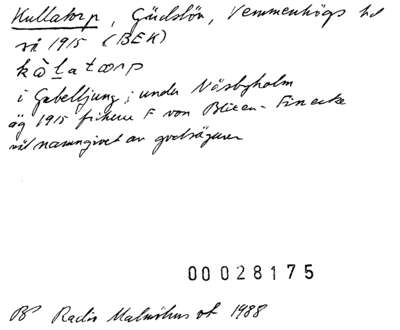 Kullatorp, Gärdslöv, Vemmenhögs hd
rå 1915 (BEK)
kålatorp
i Gabeljung; under Näsbyholm
äg 1915 friherre F von Blixen-Finecke
väl namngivet av godsägaren
00028175
PB Radio Malmöhus 1988